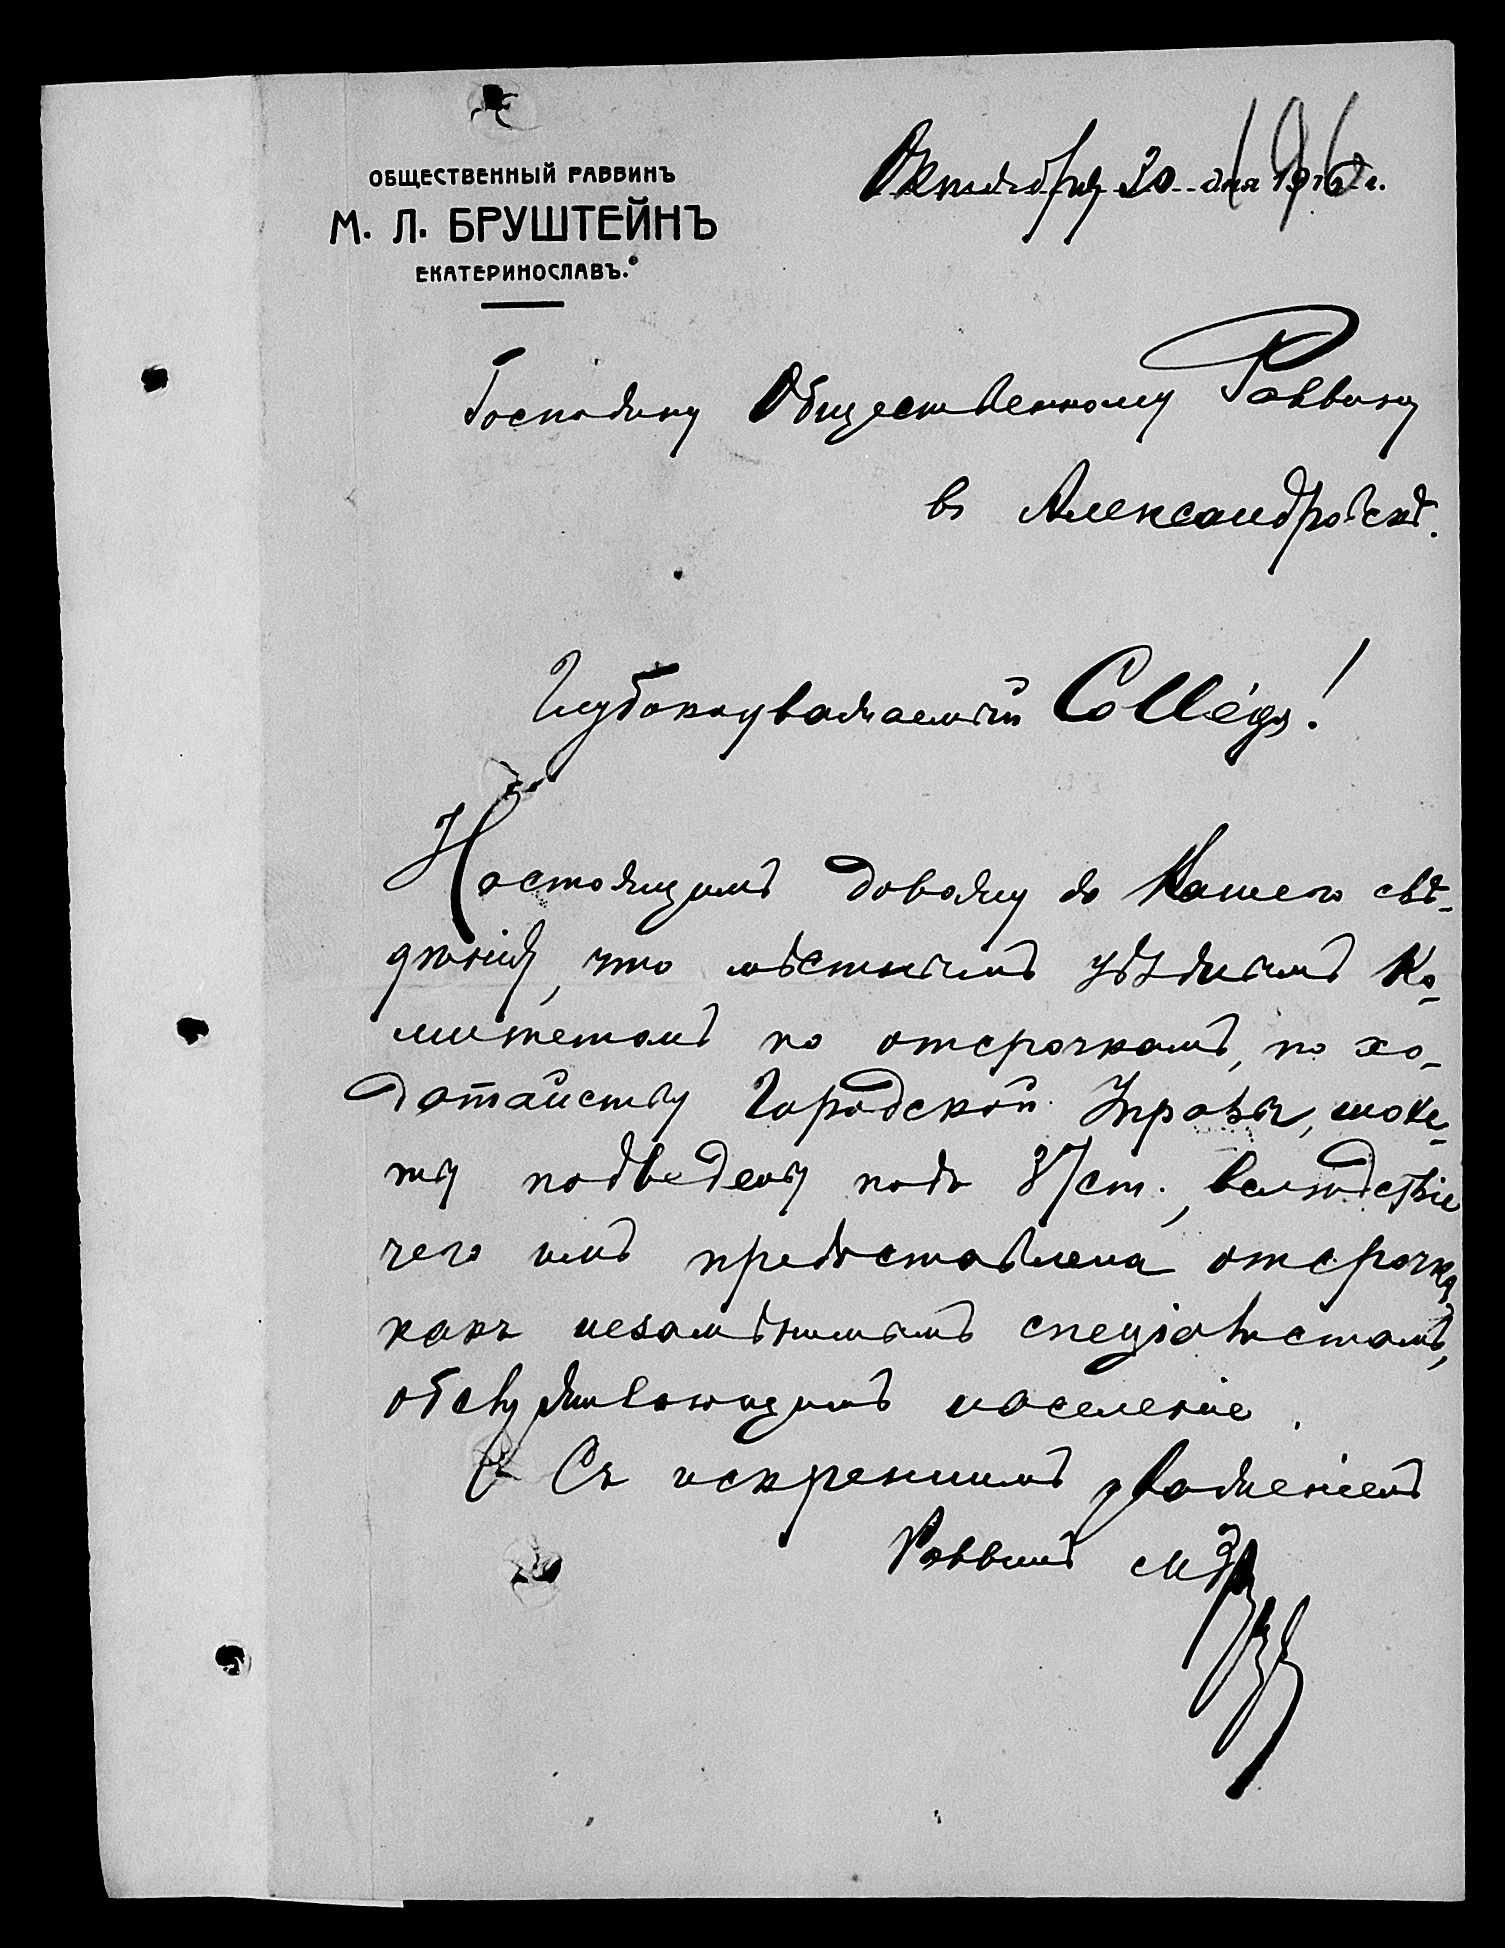 ОБЩЕСТВЕННЫЙ РАВВИНЪ
М. Л. БРУШТЕЙНЪ
ЕКАТЕРИНОСЛАВЪ.
Октября 20 дня 1916 г.
Господину Общественному Раввину
въ Александровскѣ.
Глубокоуважаемый Collega!
Настоящимъ довожу до Вашего свѣ-
дѣнія, что мѣстнымъ уѣзднымъ Ко-
митетомъ по отсрочкамъ, по хо-
датайству Городской Управы,
подведены подъ ст., вслѣдствіе
чего имъ предоставлена отсрочка
какъ незамѣнимымъ спеціалистамъ,
обслуживающимъ населеніе.
Съ искреннимъ уваженіемъ
Раввинъ М